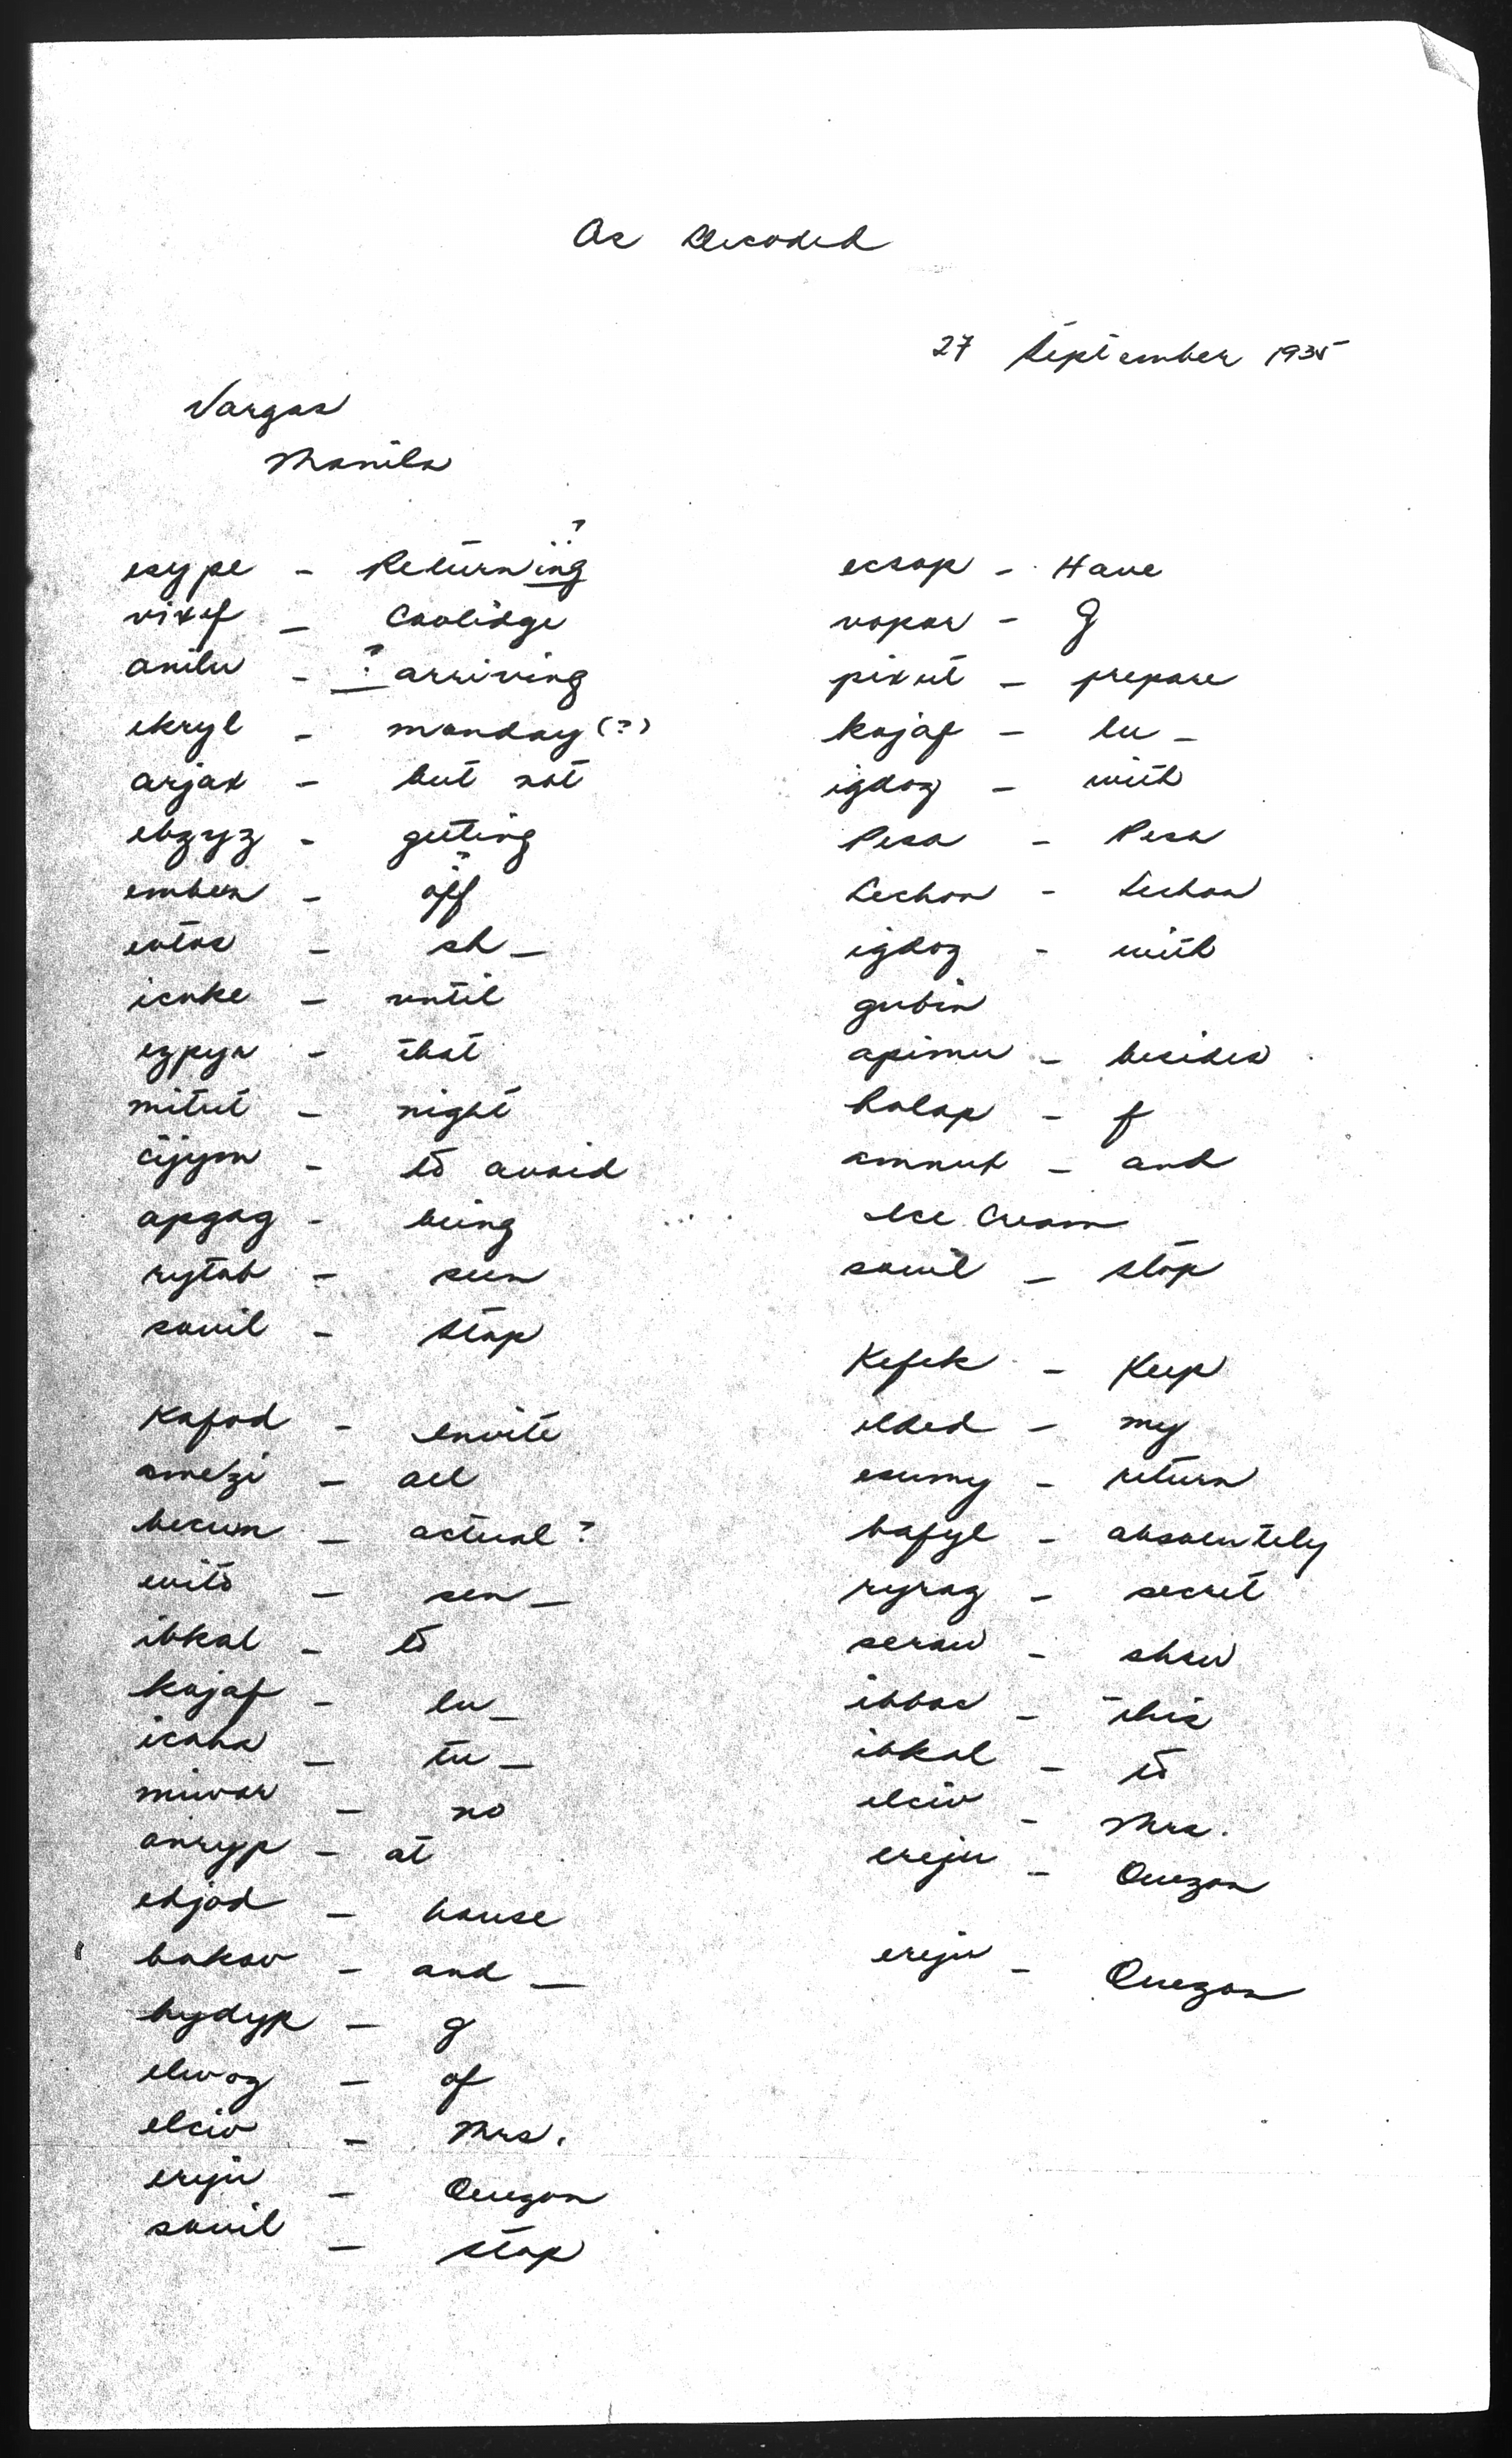 As Decoded
27 September 1935
Vargas
Manila
?
esype - Returning
vixef - Coolidge
anilu - ? arriving
ekryl - monday (?)
arjax - but not
ebzyz - getting
- off
- sh -
icuke - until
- that
mitut - night
- to avoid
apgag - being
rytab - seen
souil - stop
Kafod - invite
amezi - all
becum - actual ?
- sen -
ibkal - to
kajaf - lu -
- tu -
- no
anryp - at
edjod - house
bakav - and -
bydyp - g
elwog - of
elciv - Mrs.
ereju - Quezon
souil - stop
ecsop - Have
- g
pixut - prepare
kajaf - lu -
igdoz - with
Pesa - Pesa
Lechon - Lechon
igdoz - with
gubin
apimu - besides
halap - f
- and
Ice Cream
souil - stop
Kefek - Keep
elded - my
esumy - return
bafyl - absolutely
ryrag - secret
- show
- this
ibkal - to
elciv - Mrs.
ereju - Quezon
ereju - Quezon